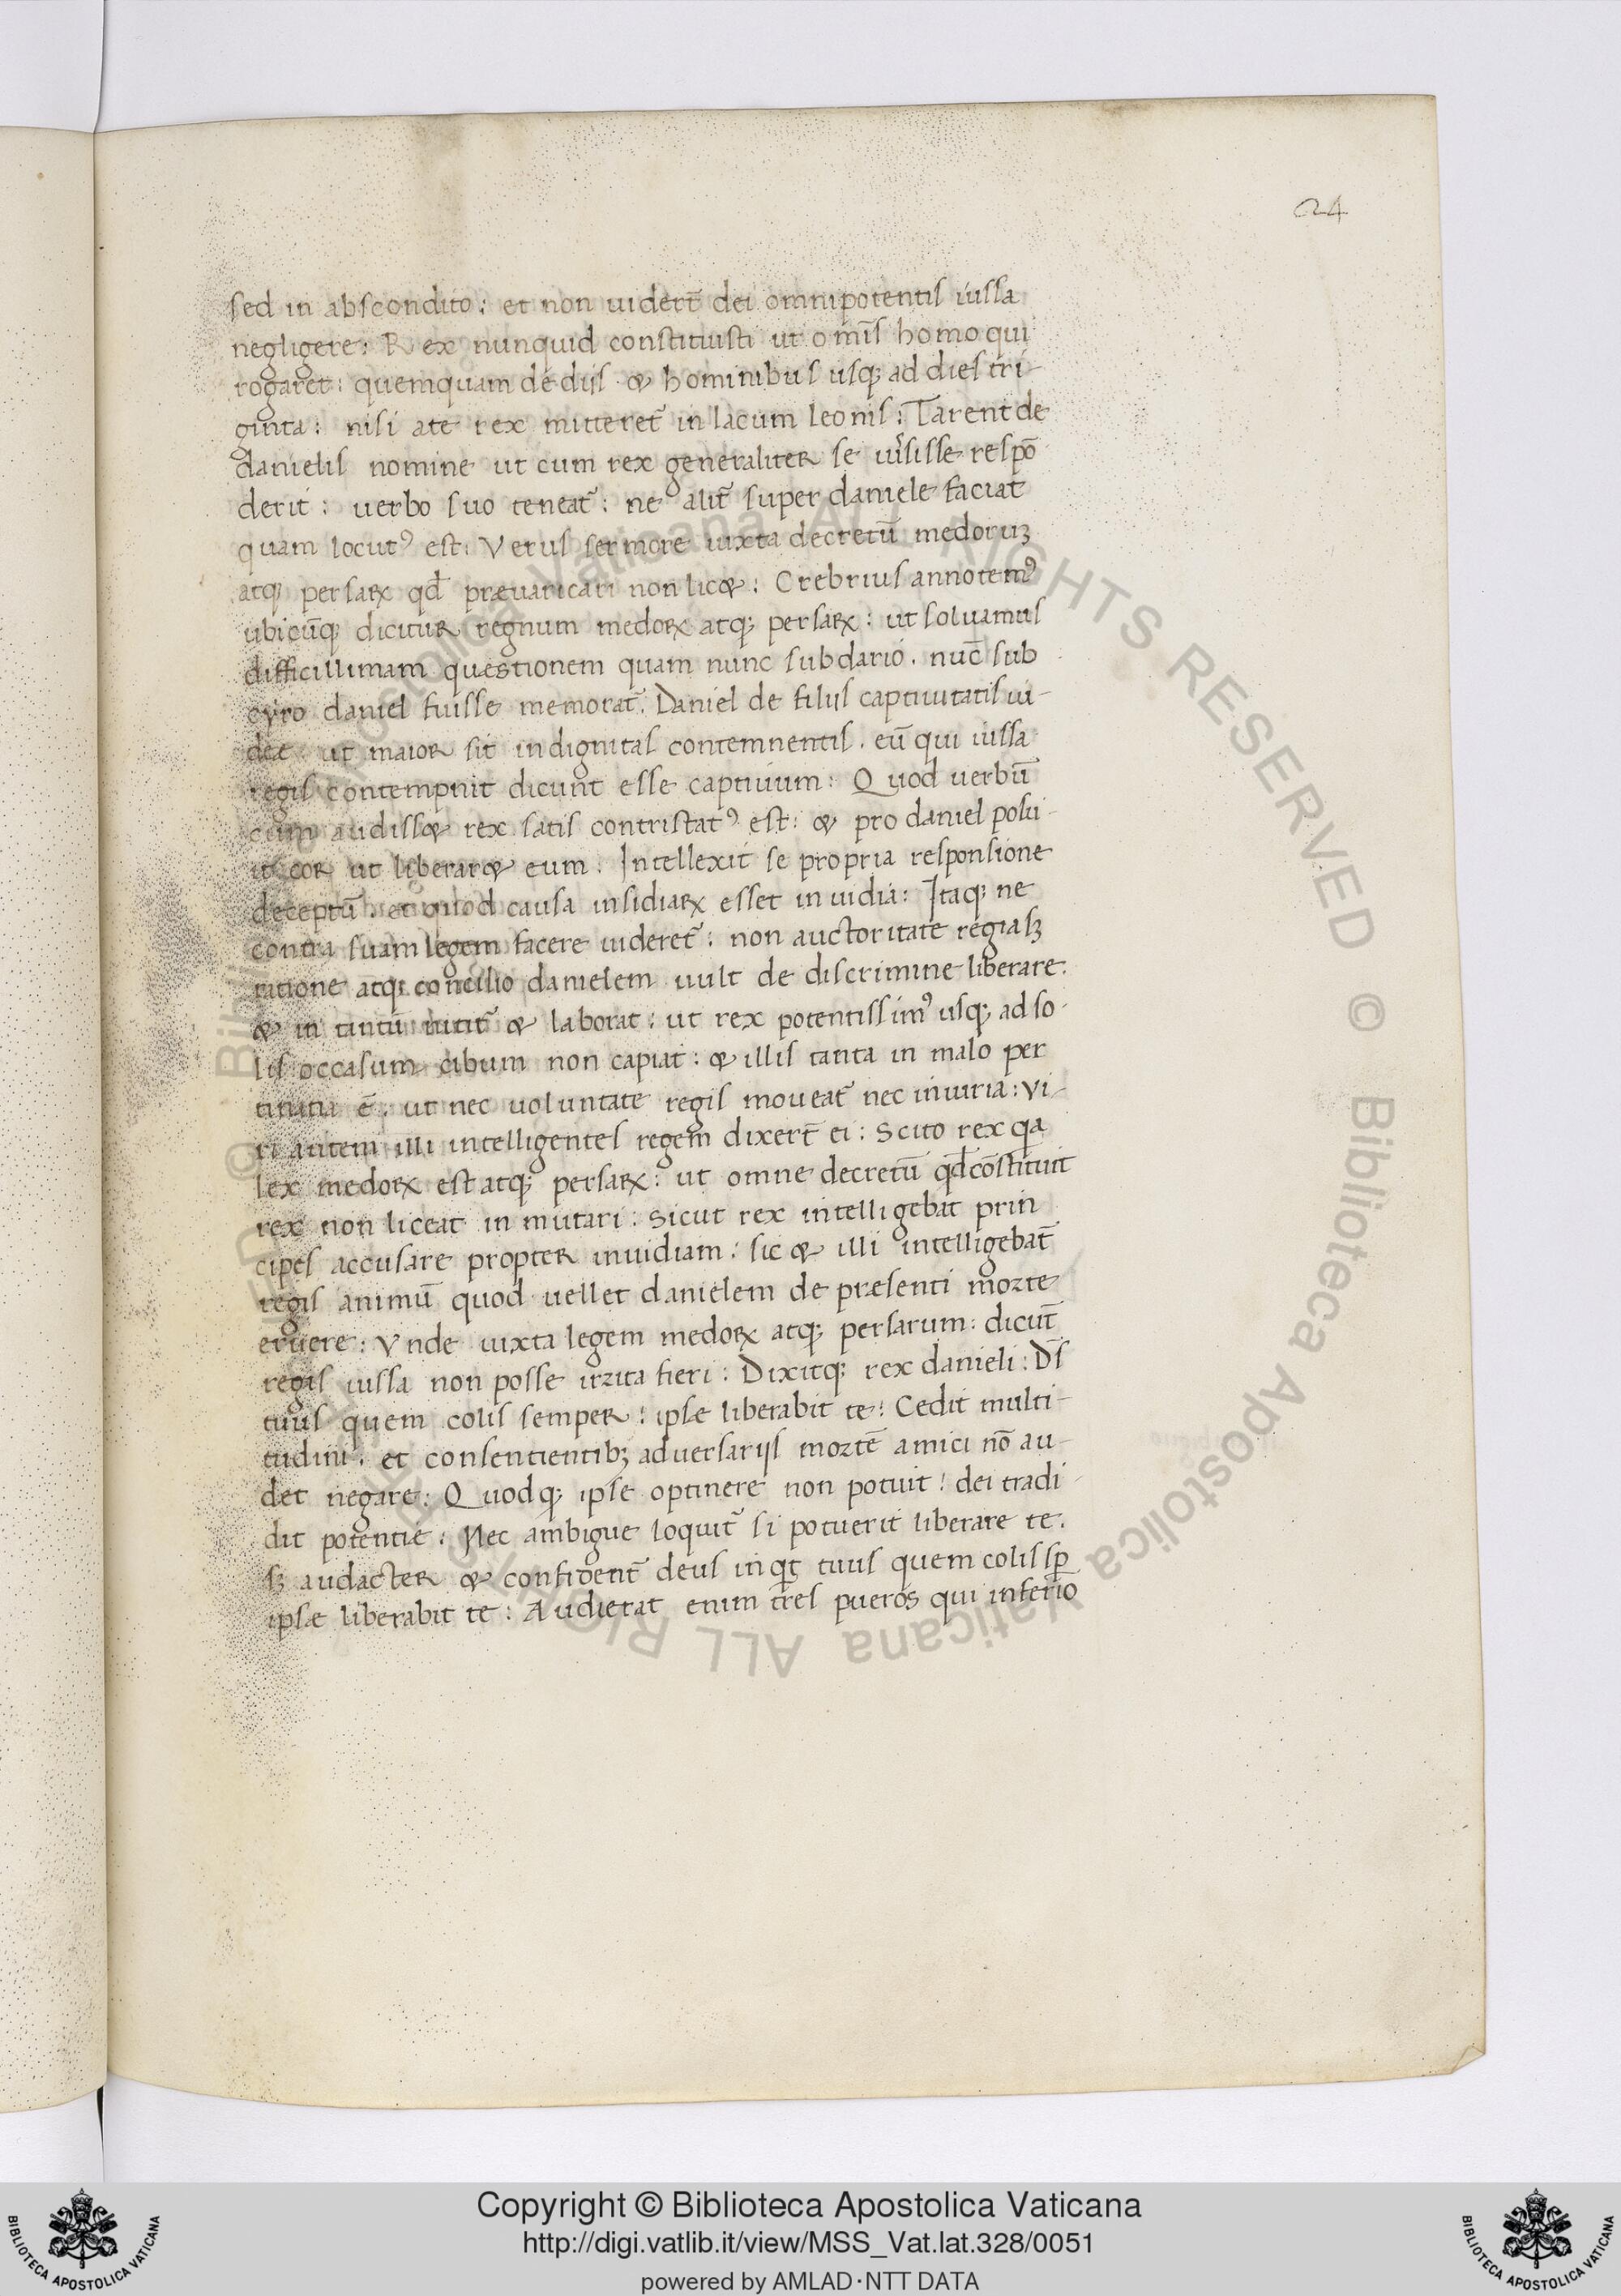 24
sed in abscondito: et non uidert̄ dei omnipotentis iussa
negligere: Rex nunquid constituisti ut omīs homo qui
rogaret: quemquam de dijs & hominibus usq; ad dies tri-
ginta: nisi a te rex mitteret̄ in lacum leonis: Tarent de
danielis nomine ut cum rex generaliter se uṙsisse respō
derit: uerbo suo teneat̄: ne alit̄ super daniele faciat
quam locutꝰ est: Verus sermore iuxta decretū medoruꝫ
atq; persaꝝ qd̄ præuaricari non lic&: Crebrius annotemꝰ
ubicūq; dicitur regnum medoꝝ atq; persaꝝ: ut soluamus
difficillimam questionem quam nunc sub dario. nūc sub
cyro daniel fuisse memorat̄. Daniel de filijs captiuitatis iu-
deę ut maior sit indignitas contemnentis. eū qui iussa
regis contempnit dicunt esse captiuum: Quod uerbū
cum audiss& rex satis contristatꝰ est: & pro daniel posu-
it cor ut liberar& eum. Intellexit se propria responsione
deceptū. et quod causa insidiaꝝ esset inuidia: Itaq; ne
contra suam legem facere uideret̄: non auctoritate regia sꝫ
ratione atq; concilio danielem uult de discrimine liberare.
& in tantū nitit̄ & laborat: ut rex potentissimꝰ usq; ad so-
lis occasum cibum non capiat: & illis tanta in malo per
tinatia ē. ut nec uoluntate regis moueat̄ nec iniuria: Vi-
ri autem illi intelligentes regem dixert̄ ei: Scito rex qa
lex medoꝝ est atq; persaꝝ: ut omne decretū qd̄ cōstituit
rex non liceat inmutari: Sicut rex intelligebat prin
cipes accusare propter inuidiam: sic & illi intelligebāt
regis animū quod uellet danielem de præsenti morte
eruere: Vnde iuxta legem medoꝝ atq; persarum: dicūt
regis iussa non posse irrita fieri: Dixitq; rex danieli: Ds̄
tuus quem colis semper: ipse liberabit te: Cedit multi-
tudini. et consentientibꝫ aduersarijs mortē amici nō au-
det negare: Quodq; ipse optinere non potuit: dei tradi-
dit potentie: Nec ambigue loquit̄ si potuerit liberare te.
sꝫ audacter & confident̄ deus inqt̄ tuus quem colis sꝑ
ipsæ liberabit te: Audierat enim tres pueros qui inferio
Copyright © Biblioteca Apostolica Vaticana
http://digi.vatlib.it/view/MSS_Vat.lat.328/0051
powered by AMLAD·NTT DATA
BIBLIOTECA APOSTOLICA VATICANA
BIBLIOTECA APOSTOLICA VATICANA
© Biblioteca Apostolica Vaticana ALL RIGHTS RESERVED
© Biblioteca Apostolica Vaticana ALL RIGHTS RESERVED